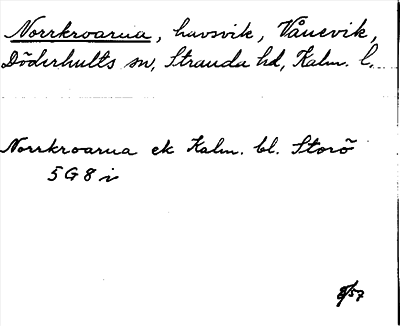 Norrkroarna, havsvik, Vånevik,
Döderhults sn, Stranda hd, Kalm. l.
Norrkroarna ek Kalm. bl. Storö
5 G 8 i